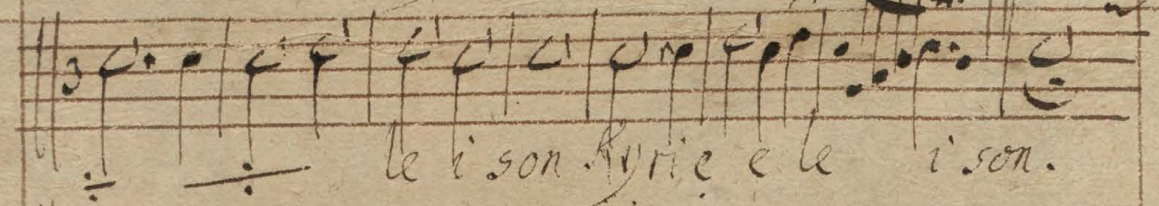 3
÷ ÷ le i son. Kyrie e le i son.